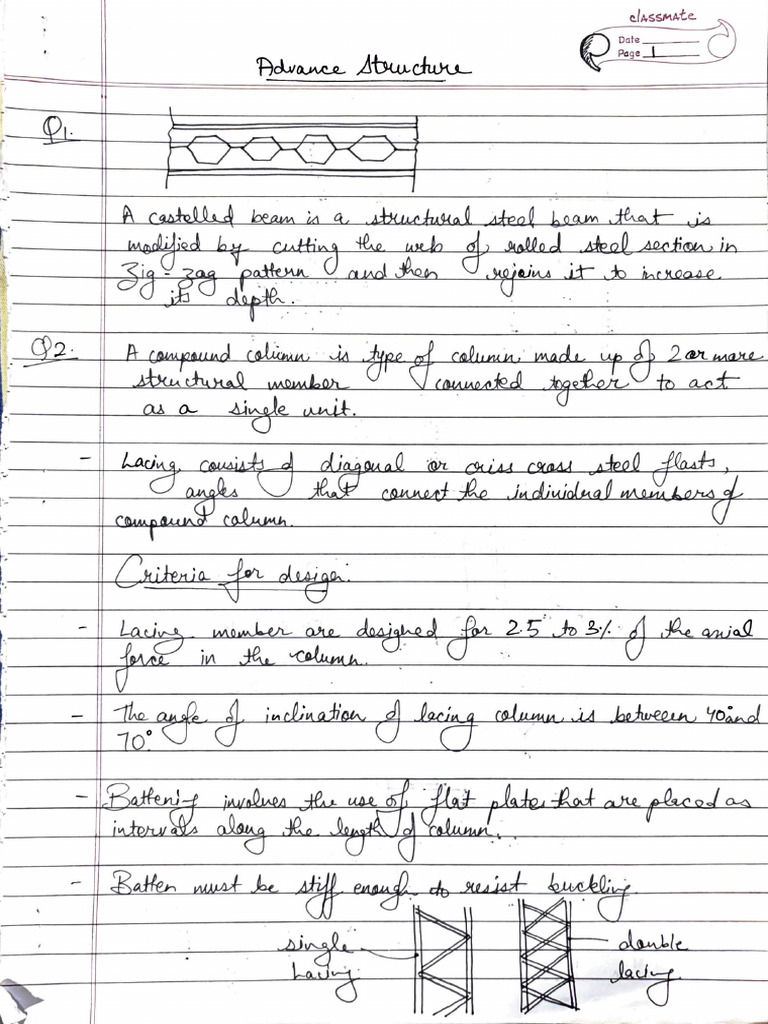 classmate
Date
Page 1
Advance Structure
Q1.
A castelled beam is a structural steel beam that is
modified by cutting the web of rolled steel section in
Zig-zag pattern and then rejoins it to increase
its depth.
Q2. A compound column is type of column made up of 2 or more
structural member connected together to act
as a single unit.
- Lacing consists of diagonal or criss cross steel flasts,
angles that connect the individual members of
compound column.
Criteria for design:
- Lacing member are designed for 2.5 to 3% of the axial
force in the column.
- The angle of inclination of lacing column is between 40° and
70°
- Battenig involves the use of flat plate that are placed as
intervals along the length of column.
- Batten must be stiff enough to resist buckling.
single double
Lacing lacing